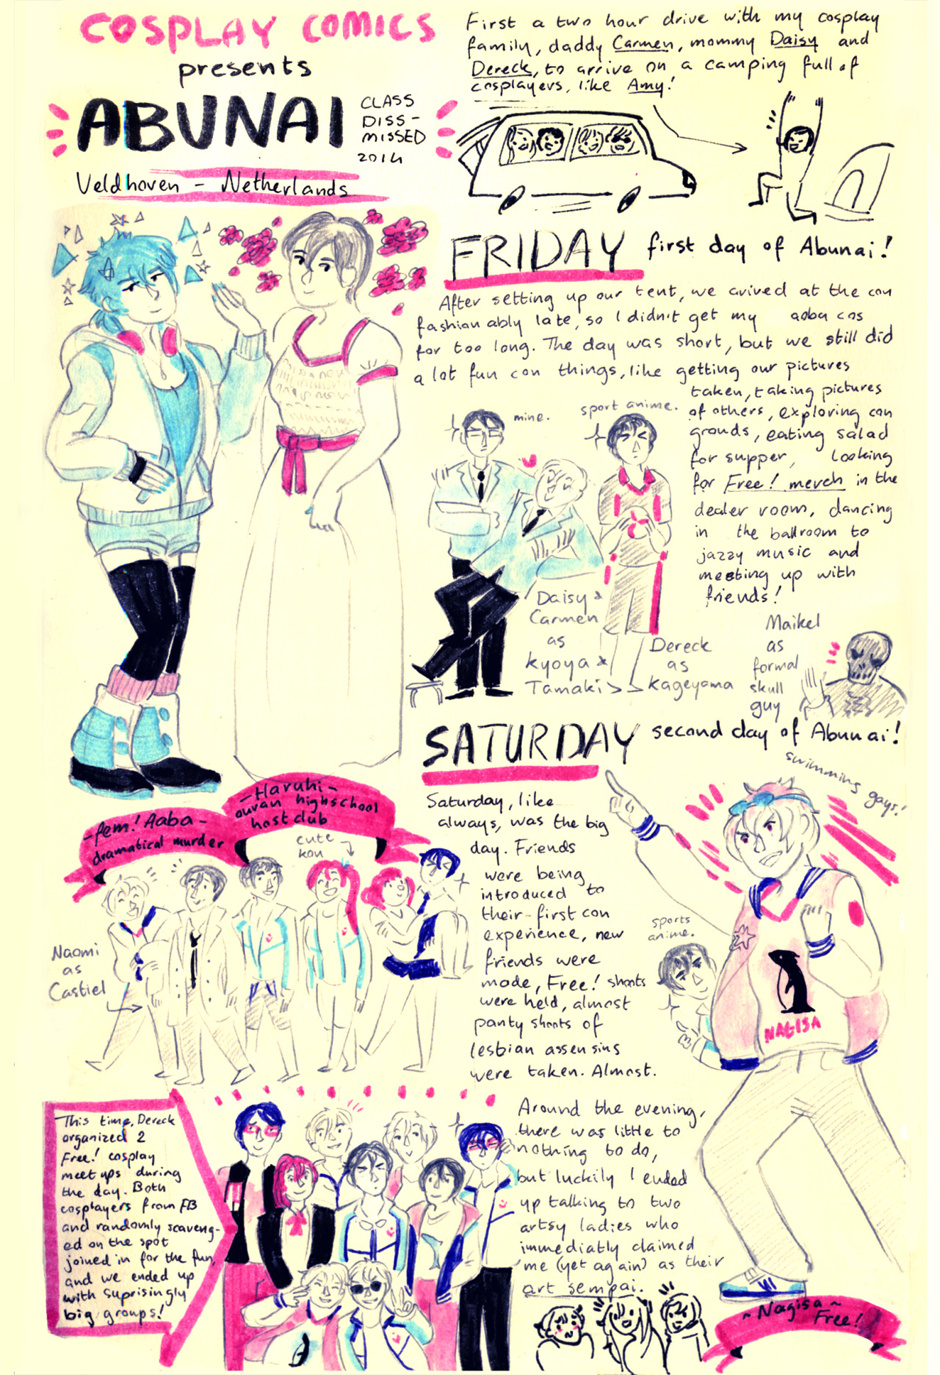 COSPLAY COMICS
presents
ABUNAI
CLASS
DISS-
MISSED
2014
Veldhoven - Netherlands
First a two hour drive with my cosplay
family, daddy Carmen, mommy Daisy and
Dereck, to arrive on a camping full of
cosplayers, like Amy!
FRIDAY first day of Abunai!
After setting up our tent, we arived at the con
fashionably late, so I didn't get my aoba cos
for too long. The day was short, but we still did
a lot fun con things, like getting our pictures
taken, taking pictures
of others, exploring con
grouds, eating salad
for supper, looking
for Free! merch in the
dealer room, dancing
in the ballroom to
jazzy music and
meeting up with
friends!
mine.
sport anime.
Daisy
Carmen
as
Kyoya
Tamaki
Dereck
as
Kageyama
Maikel
as
formal
skull
guy
-fem! Aoba-
dramatical murder
-Haruhi-
ouran highschool
hostclub
SATURDAY second day of Abunai!
swimming gays!
Saturday, like
always, was the big
day. Friends
were being
introduced to
their first con
experience, new
friends were
made, Free! shoots
were held, almost
panty shoots of
lesbian assensins
were taken. Almost.
cute
kou
Naomi
as
Castiel
sports
anime.
NAGISA
This time, Dereck
organized 2
Free! cosplay
meet ups during
the day. Both
cosplayers from FB
and randomly scaveng-
ed on the spot
joined in for the fun,
and we ended up
with suprisingly
big groups!
Around the evening,
there was little to
nothing to do,
but luckily I ended
up talking to two
artsy ladies who
immediatly claimed
me (yet again) as their
art sempai.
~ Nagisa ~
Free!